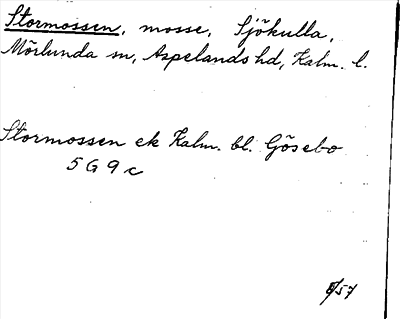 Stormossen, mosse, Sjökulla,
Mörlunda sn, Aspelands hd, Kalm. l.
Stormossen ek Kalm. bl. Gösebo
5 G 9 c
/57